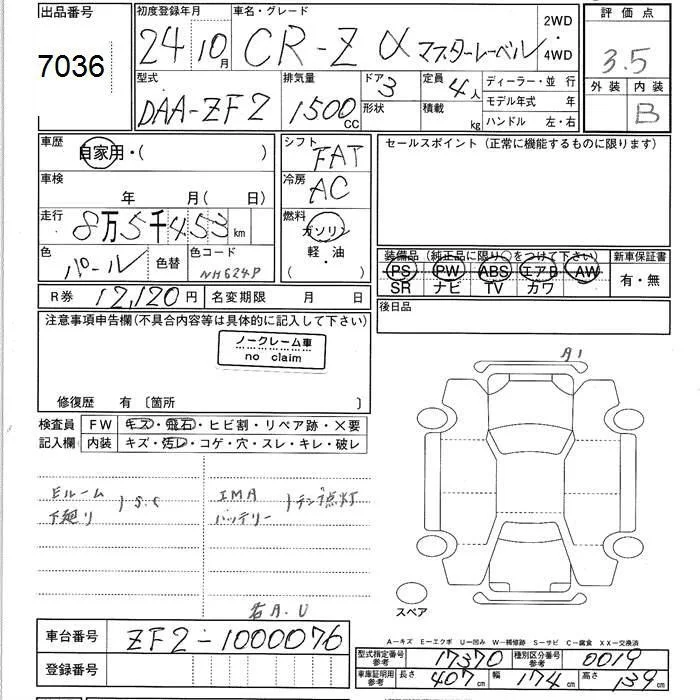 出品番号
7036
初度登録年月
24 10月
車名・グレード
CR-Z α マスターレーベル
2WD
・
4WD
評価点
3.5
外装 内装
B
型式
DAA-ZF2
排気量
1500cc
ドア 3
形状
定員 4人
積載 kg
ディーラー・並行
モデル年式 年
ハンドル 左・右
車歴
自家用・( )
車検
年 月( 日)
走行
8万5千453km
色
パール
色替
色コード
NH624P
シフト
FAT
冷房
AC
燃料
ガソリン
軽・油
( )
セールスポイント(正常に機能するものに限ります)
装備品(純正品に限り○をつけて下さい)
PS PW ABS エアB AW
SR ナビ TV カワ
新車保証書
有・無
R券 12,120円
名変期限 月 日
後日品
注意事項申告欄(不具合内容等は具体的に記入して下さい)
ノークレーム車
no claim
修復歴 有 〔箇所 〕
検査員
記入欄
FW キズ・飛石・ヒビ割・リペア跡・×要
内装 キズ・汚レ・コゲ・穴・スレ・キレ・破レ
Eルーム
下廻り
S.C
IMA
バッテリー
テンプ点灯
右A.U
A1
スペア
車台番号 ZF2-1000076
登録番号
A-キズ E-エクボ U-凹み W-補修跡 S-サビ C-腐食 XX-交換済
型式指定番号
参考
17370
種別区分番号
参考
0019
車庫証明用
参考
長さ 407cm 幅 174cm 高さ 139cm